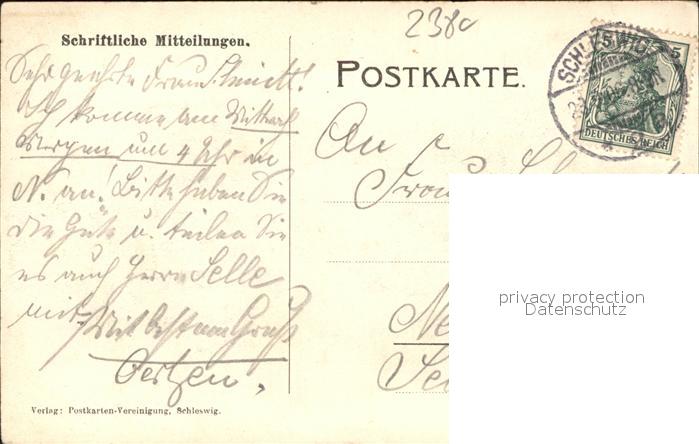 238c
Schriftliche Mitteilungen.
POSTKARTE.
SCHLESWIG
5 5
DEUTSCHES REICH
Sehr geehrte Frau Schmidt!
Ich komme am Mittwoch
Morgen um 4 Uhr in
N. an! Bitte haben Sie
die Güte u. teilen Sie
es auch Herrn Selle
mit.
Mit bestem Gruß
Oertzen.
An
Frau
Ne
privacy protection
Datenschutz
Verlag: Postkarten-Vereinigung, Schleswig.